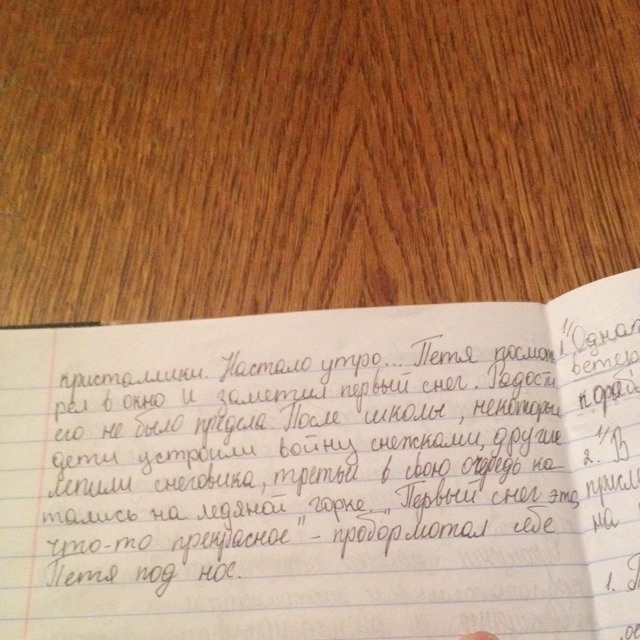 кристаллики. Настало утро... Петя посмот
рел в окно и заметил первый снег. Радости
его не было предела. После школы, некоторые
дети устроили войну снежками, другие
лепили снеговика, третьи в свою очередь ка-
тались на ледяной горке. "Первый снег это
что-то прекрасное" - пробормотал себе
Петя под нос.
1. Однаж
ветер
кораб
2. В
присл
на
1.